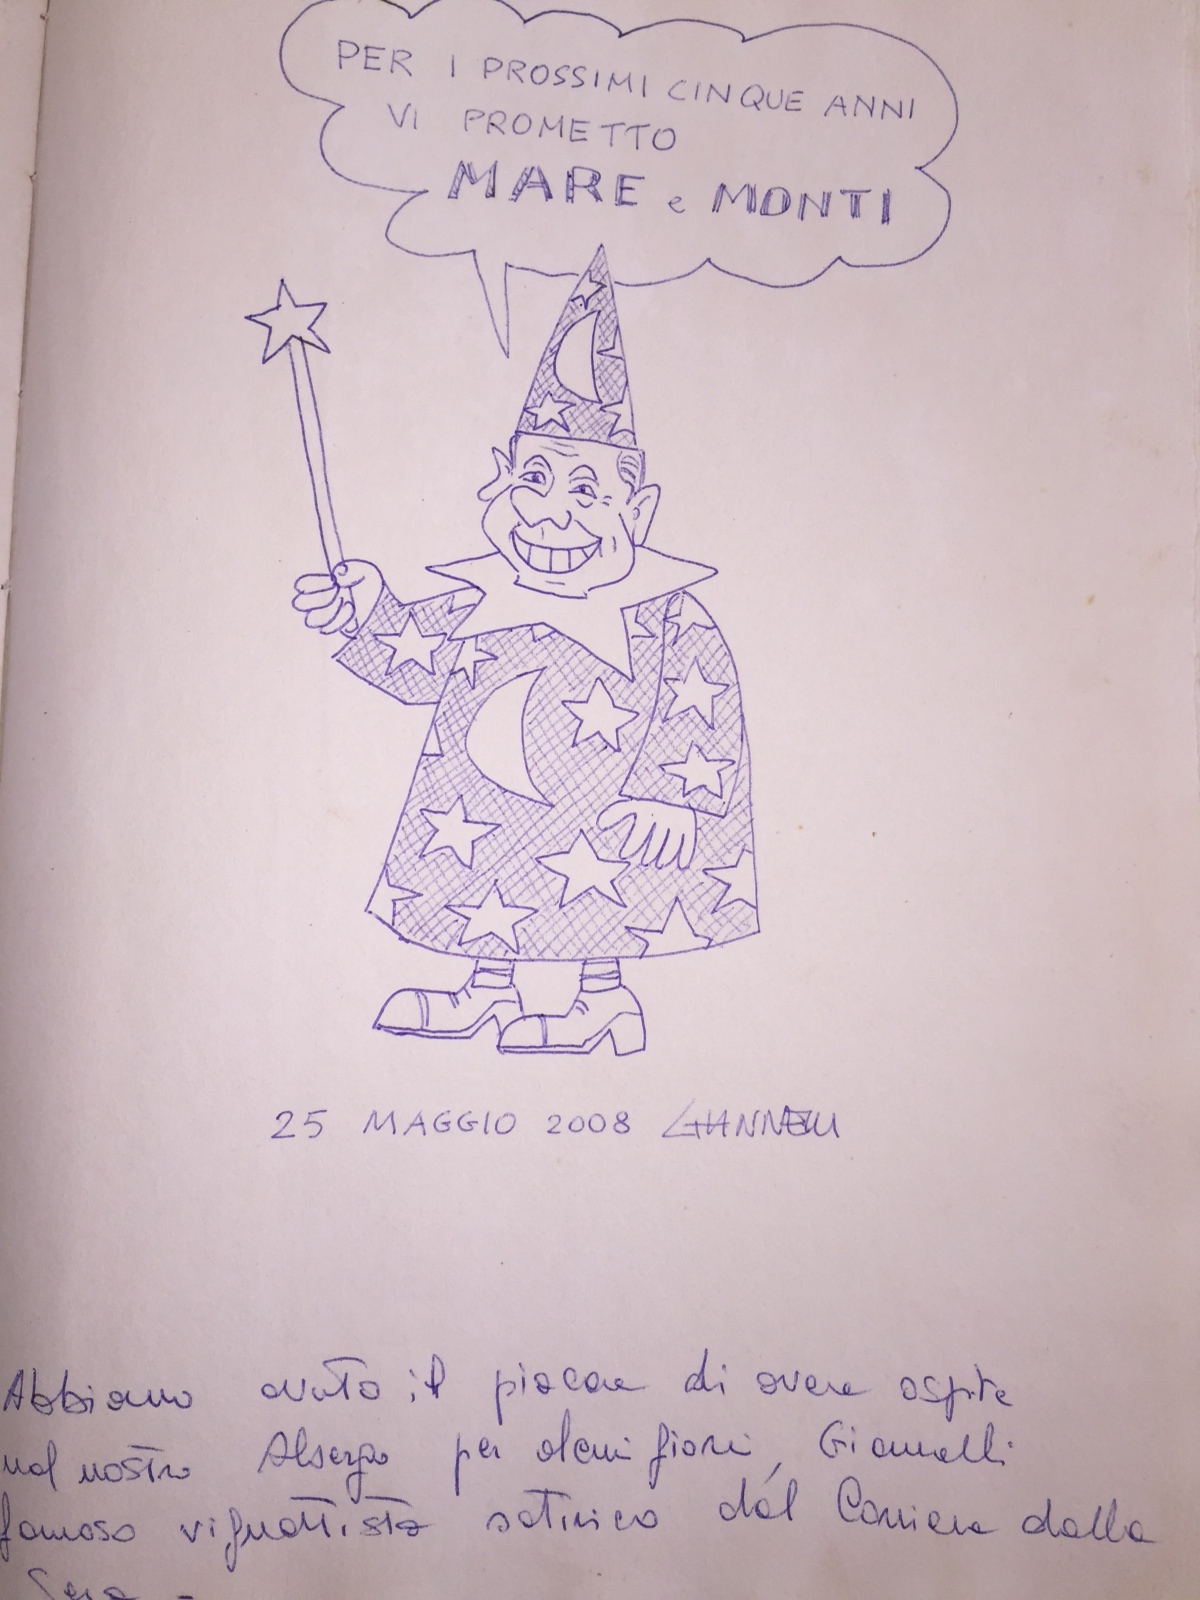 PER I PROSSIMI CINQUE ANNI
VI PROMETTO
MARE e MONTI
25 MAGGIO 2008 GIANNELLI
Abbiamo avuto il piacere di avere ospite
nel nostro Albergo per alcuni giorni, Giannelli
famoso vignettista satirico del Corriere della
Sera -